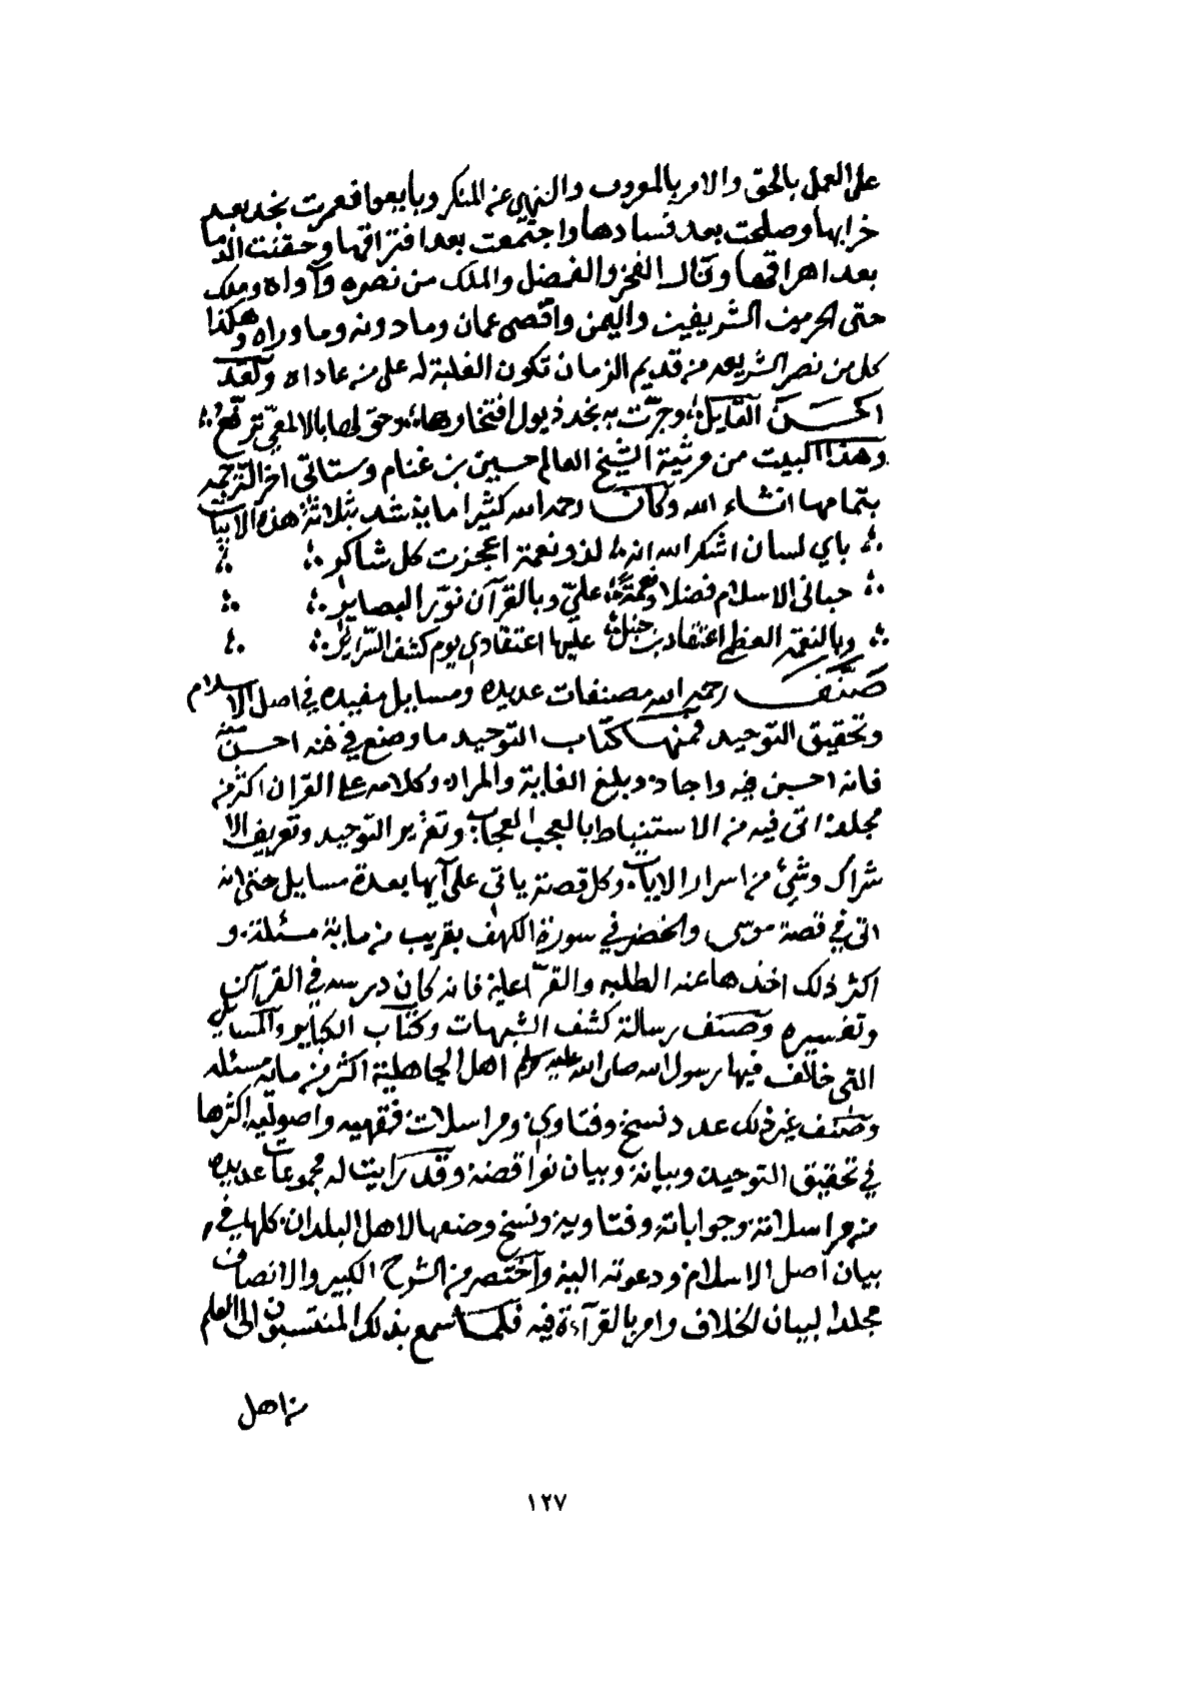 على العمل بالحق والامر بالمعروف والنهي عن المنكر وبايعوا فعمرت نجد بعد
خرابها وصلحت بعد فسادها واجتمعت بعد افتراقها وحقنت الدما
بعد اهراقها ونال الفخر والفضل والملك من نصره وآواه وملك
حتى الحرمين الشريفين واليمن واقصى عمان وما دونه وما وراه وهكذا
كل من نصر الشريعه من قديم الزمان تكون الغلبة له على من عاداه ولقد
احسن القايل وجرّت به نجد ذيول افتخارها وحق لها بالالمعيّ ترفّع
وهذا البيت من مرثية الشيخ العالم حسين بن غنام وستاتي اخر الترجمه
بتمامها انشاء الله وكان رحمه الله كثيرا ما ينشد بثلاثة هذه الابيات
باي لسان اشكر الله انه لذو نعمة اعجزت كل شاكر
حباني الاسلام فضلا ونعمة عليّ وبالقرآن نوّر البصاير
وبالنعمة العظمى اعتقاد بن حنبل عليها اعتقادي يوم كشف السّراير
صنّف رحمه الله مصنفات عديده ومسايل مفيده في اصل الاسلام
وتحقيق التوحيد فمنها كتاب التوحيد ما وضع في فنه احسن منه
فانه احسن فيه واجاد وبلغ الغاية والمراد وكلامه على القران اكثر من
مجلد اتى فيه من الاستنباط بالعجب العجاب وتقرير التوحيد وتعريف الا
شراك وشئ من اسرار الايات وكل قصة ياتي على آيها بعدة مسايل حتى انه
اتى في قصة موسى والخضر في سورة الكهف بقريب من ماية مسئلة و
اكثر ذلك اخذها عنه الطلبه والقرّا عليه فانه كان درسه في القرآن
وتفسيره وصنف رسالة كشف الشبهات وكتاب الكباير والمسايل
التي خالف فيها رسول الله صلى الله عليه وسلم اهل الجاهلية اكثر من مايه مسئله
وصنف غير ذلك عدد نسخ وفتاوي ومراسلات فقهيه واصوليه اكثرها
في تحقيق التوحيد وبيانه وبيان نواقضه وقد رايت له مجموعات عديده
من مراسلاته وجواباته وفتاويه ونسخ وضعها لاهل البلدان كلها في
بيان اصل الاسلام ودعوته اليه واختصر من الشرح الكبير والانصاف
مجلدا لبيان الخلاف وامر بالقرآءة فيه فلما سمع بذلك المنتسبون الى العلم
من اهل
١٢٧